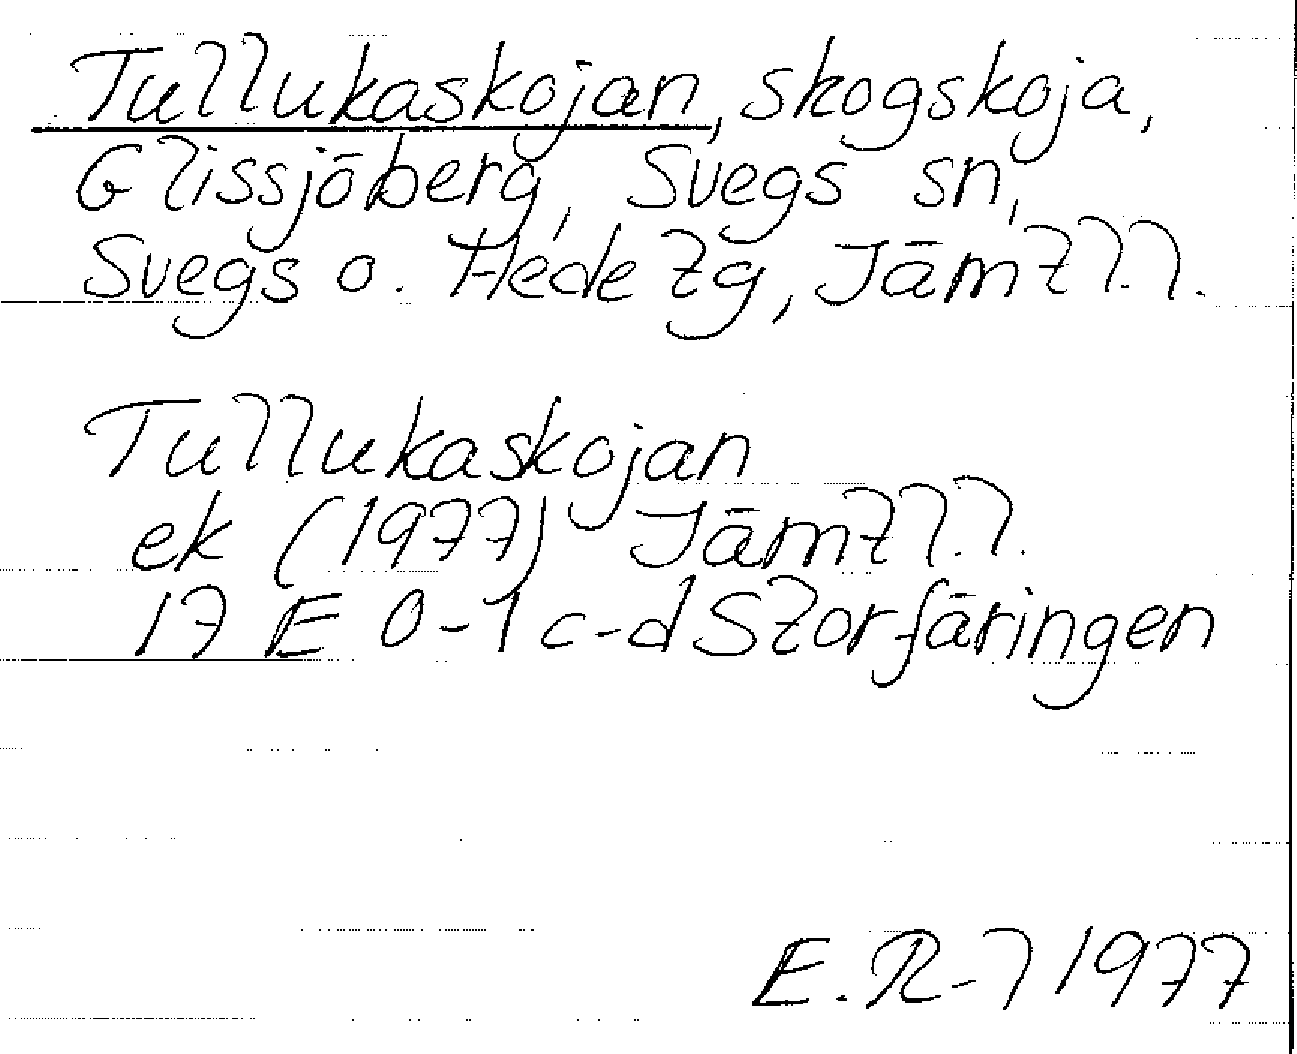 Tullukaskojan, skogskoja,
Glissjöberg, Svegs sn,
Svegs o. Hede tg, Jämtl.l.
Tullukaskojan
ek (1977) Jämtl.l.
17 E 0-1 c-d Storfäringen
E.R-l 1977